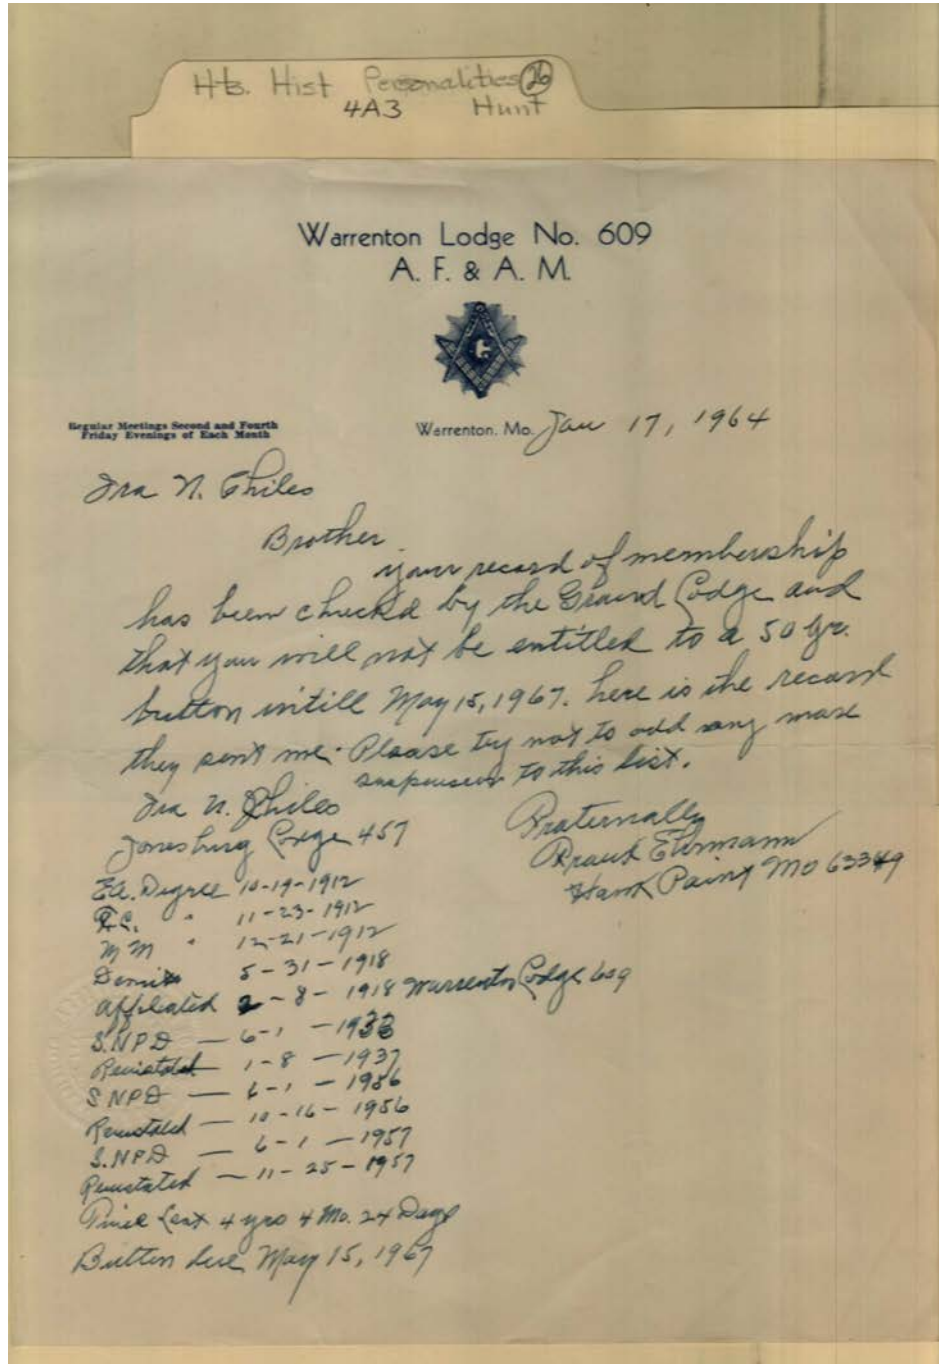 Hts. Hist Personalities 26
4A3 Hunt
Warrenton Lodge No. 609
A. F. & A. M.
G
Regular Meetings Second and Fourth
Friday Evenings of Each Month
Warrenton, Mo. Jan 17, 1964
Ira N. Chiles
Brother
your record of membership
has been checkd by the Grand Lodge and
that you will not be entitled to a 50 yr.
button untill May 15, 1967. here is the record
they sent me. Please try not to add any more
suspension to this list.
Ira N. Chiles
Jonesburg Lodge 457
Fraternally
Ehrmann
Hawk Point Mo 63349
E.A. Degree 10-19-1912
F.C. " 11-23-1912
MM " 12-21-1912
Demit 5-31-1918
Affiliated 2-8-1918 Warrenton Lodge 609
S.NPD — 6-1 —
Reinstated 1-8 — 1937
S NPD — 6-1 — 1956
Reinstated — 10-16-1956
S.NPD — 6-1 — 1957
Reinstated — 11-25-1957
Time Lost 4 yrs 4 Mo. 24 Days
Button due May 15, 1967